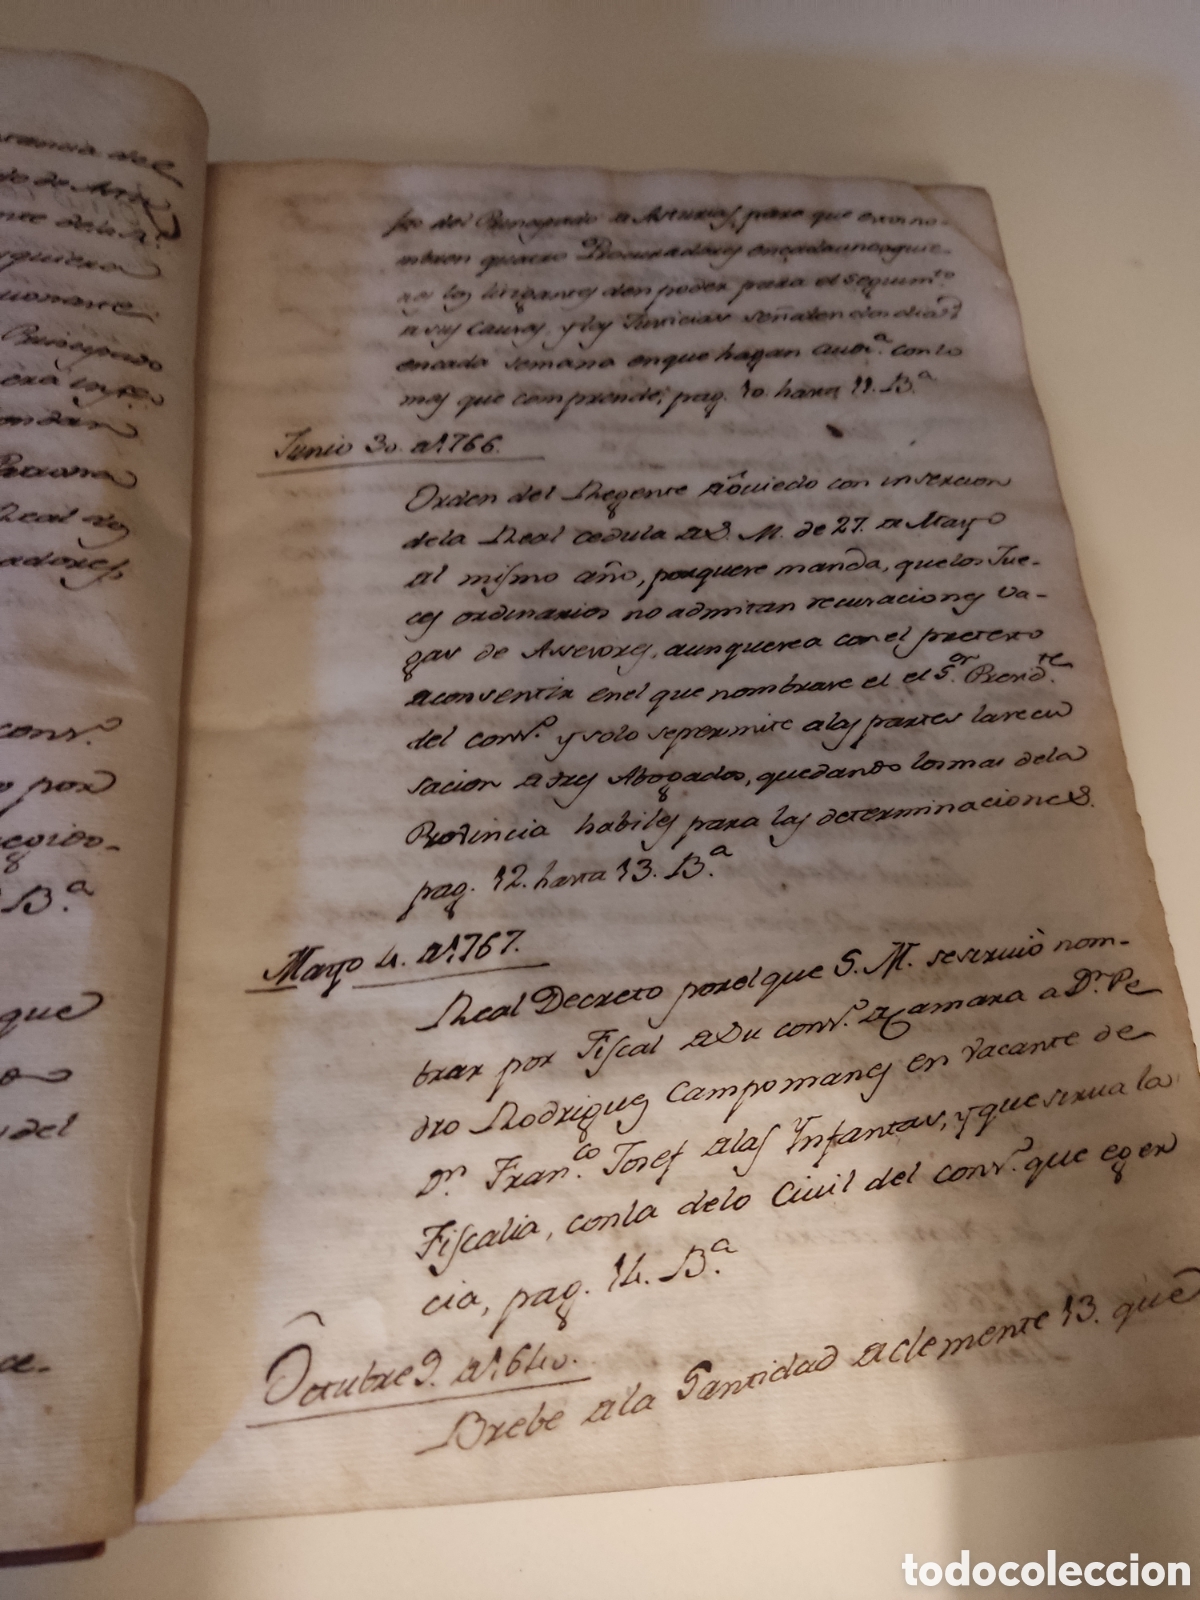 rancia del
do de Astu
nte de la R.
quiera
uonare
Principado
era infe.
ondan
Persona
Real de
adores
conv.
o por
egido-
B.ª
que
del
a-
seo del Principado de Asturias, para que estos no-
mbren quatro Procuradores en cada uno a quie-
nes los litigantes den poder para el seguim.to
de sus causas, y las Justicias señalen dos dias
en cada semana en que hagan aud.ª con lo
mas que comprende, pag. 10. hasta 11. B.ª
Junio 30. de 1766.
Orden del Regente de Oviedo con insercion
de la Real cedula de S. M. de 27. de Mayo
del mismo año, por que se manda, que los Jue-
ces ordinarios no admitan recusaciones va-
gas de Asesores, aunque sea con el pretexto
de consentir en el que nombrare el el S.or Presid.te
del cons.o y solo se permite a las partes la recu
sacion de tres Abogados, quedando los mas de la
Provincia habiles para las determinaciones.
pag. 12. hasta 13. B.ª
Mayo 4. de 1767.
Real Decreto por el que S. M. se sirvió nom-
brar por Fiscal de su cons.o de Camara a D.n Pe
dro Rodriguez Campomanes en vacante de
D.n Fran.co Josef de las Ynfantas, y que sirva la
Fiscalia, con la de lo Civil del cons.o que eger
cia, pag. 14. B.ª
Octubre 9. de 1640.
Brebe de la Santidad de Clemente 13. que
todocoleccion